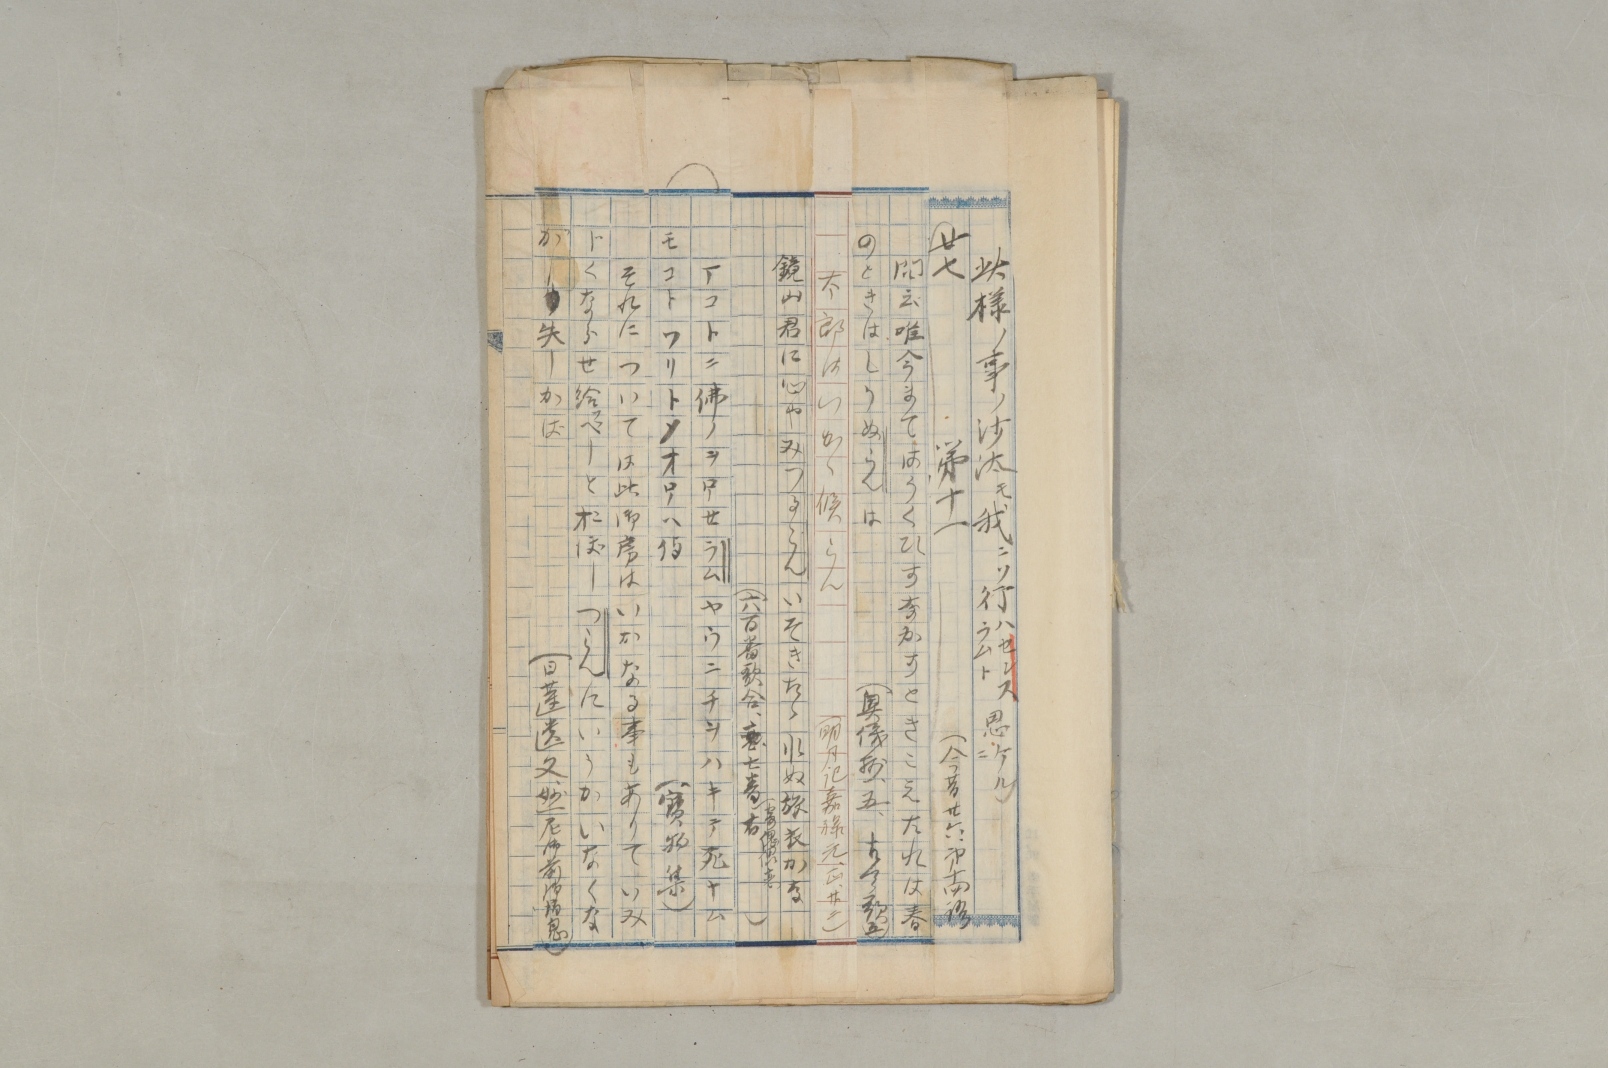 此様ノ事ノ沙汰モ我ニソ行ハセンズラムト思ニケル)
(今昔廿六、第十一
廿七
問云唯今まてはうくひすなかすときこえたれは春
のときはしりぬらんは
(奥儀抄、五、
太郎はいかゝ候らん
(明月記嘉禄元、正、廿二)
鏡山君に心やみつるらんいそきたゝれぬ旅衣かな
(六百番歌合、恋七番右
アコトニ佛ノヲワセラムヤウニチツハキテ死ナム
モコトワリトメオロハ侍
(寶物集)
それについては此御房はいかなる事もありていみ
じくならせ給べしとおぼしつらんにいうかいなくな
がし失しかば
(日蓮遺文、妙一尼御前御消息)